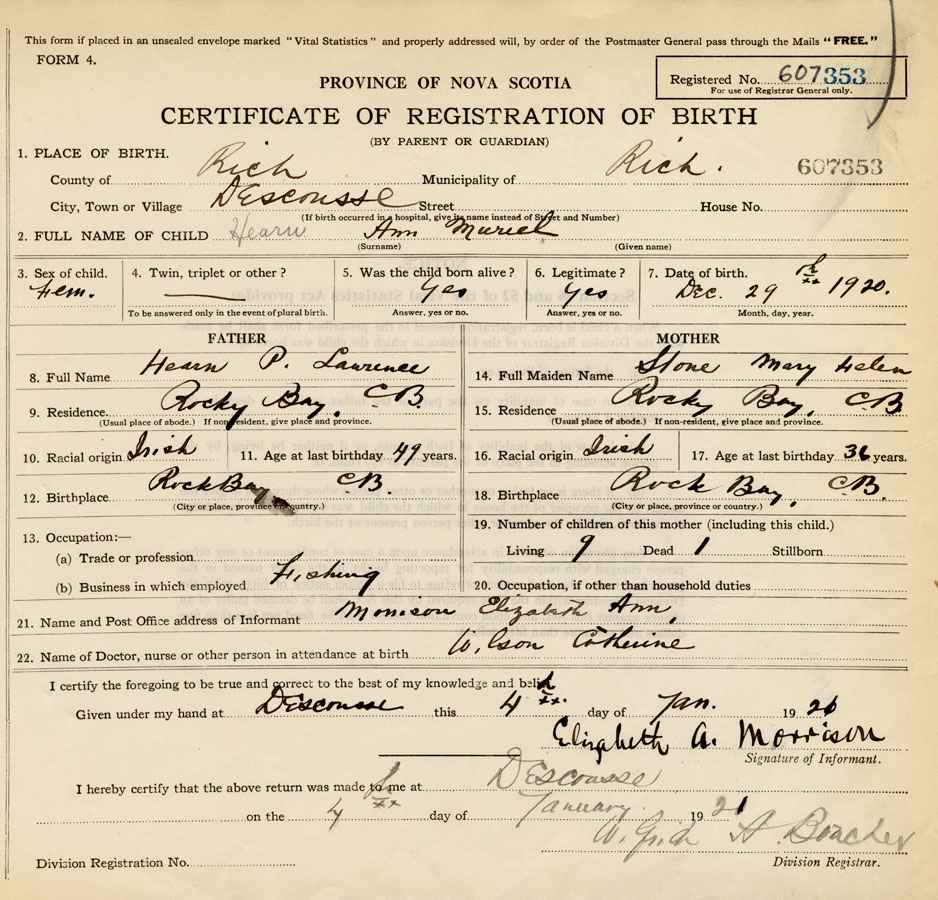 This form if placed in an unsealed envelope marked "Vital Statistics" and properly addressed will, by order of the Postmaster General pass through the Mails "FREE."
FORM 4.
Registered No. 607353
For use of Registrar General only.
PROVINCE OF NOVA SCOTIA
CERTIFICATE OF REGISTRATION OF BIRTH
(BY PARENT OR GUARDIAN)
1. PLACE OF BIRTH.
607353
County of Rich Municipality of Rich.
City, Town or Village DEscousse Street House No.
(If birth occurred in a hospital, give its name instead of Street and Number)
2. FULL NAME OF CHILD Hearn Ann Muriel
(Surname) (Given name)
3. Sex of child. 4. Twin, triplet or other? 5. Was the child born alive? 6. Legitimate? 7. Date of birth.
Fem. Yes Yes Dec. 29 1920.
To be answered only in the event of plural birth. Answer, yes or no. Answer, yes or no. Month, day, year.
FATHER
8. Full Name Hearn P. Lawrence
9. Residence Rocky Bay, C.B.
(Usual place of abode.) If non-resident, give place and province.
10. Racial origin Irish 11. Age at last birthday 49 years.
12. Birthplace Rock Bay C.B.
(City or place, province or country.)
13. Occupation:—
(a) Trade or profession
(b) Business in which employed Fishing
MOTHER
14. Full Maiden Name Stone Mary Helen
15. Residence Rocky Bay, C.B.
(Usual place of abode.) If non-resident, give place and province.
16. Racial origin Irish 17. Age at last birthday 36 years.
18. Birthplace Rock Bay, C.B.
(City or place, province or country.)
19. Number of children of this mother (including this child.)
Living 9 Dead 1 Stillborn
20. Occupation, if other than household duties
21. Name and Post Office address of Informant Morrison Elizabeth Ann,
22. Name of Doctor, nurse or other person in attendance at birth Wilson Catherine
I certify the foregoing to be true and correct to the best of my knowledge and belief.
Given under my hand at Descousse this 4 day of Jan. 1921
Elizabeth A. Morrison
Signature of Informant.
I hereby certify that the above return was made to me at DEscousse
on the 4 day of January 1921
Division Registration No.
Division Registrar.